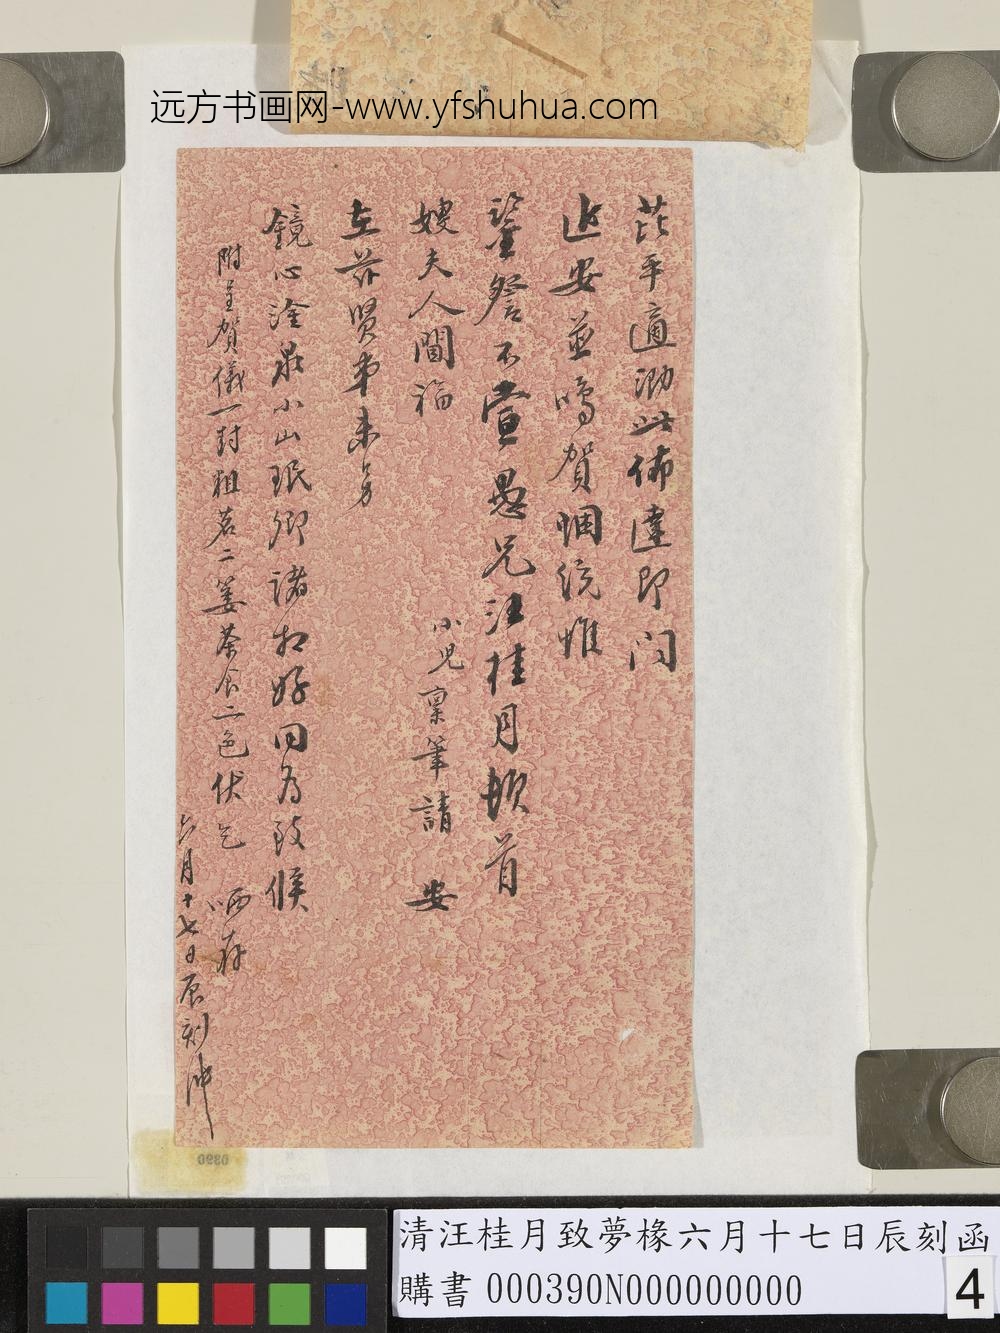 远方书画网-www.yfshuhua.com
花平適泐此佈達即问
近安並鳴賀悃統惟
鋻詧不宣愚兄汪桂月頓首
嫂夫人閫福
小児稟筆請 安
左芬賢弟未另
鏡心淦泉小山珉卿諸相好同為致候
附呈賀儀一封粗茗二簍茶食二色伏乞 哂存
六月十七日辰刻沖
0390
清汪桂月致夢椽六月十七日辰刻函
購書 000390N000000000
4